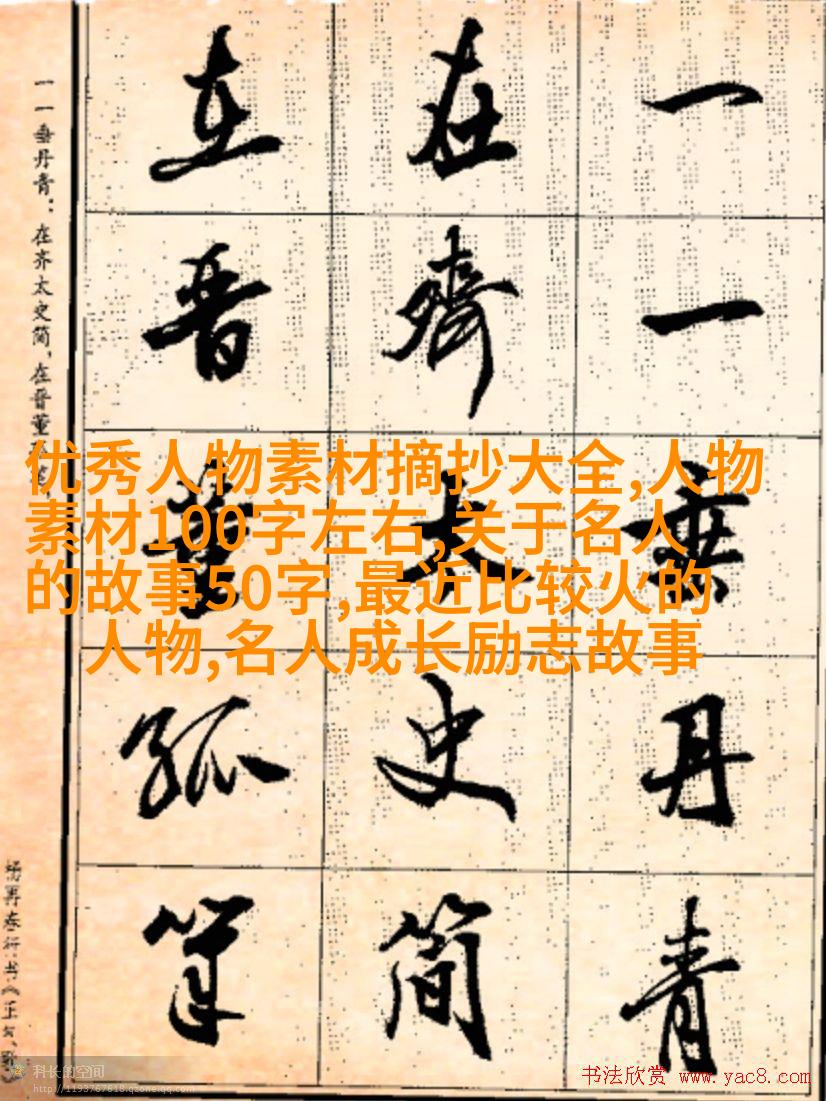 一一垂丹青
在齊太史简
在晋董狐筆
一一垂丹青：在齐太史简，在晋董
杨再春行书《正气歌》
优秀人物素材摘抄大全,人物
素材100字左右,关于名人
的故事50字,最近比较火的
人物,名人成长励志故事
科长的空间
http://1193767618.qzone.qq.com
书法欣赏 www.yac8.com